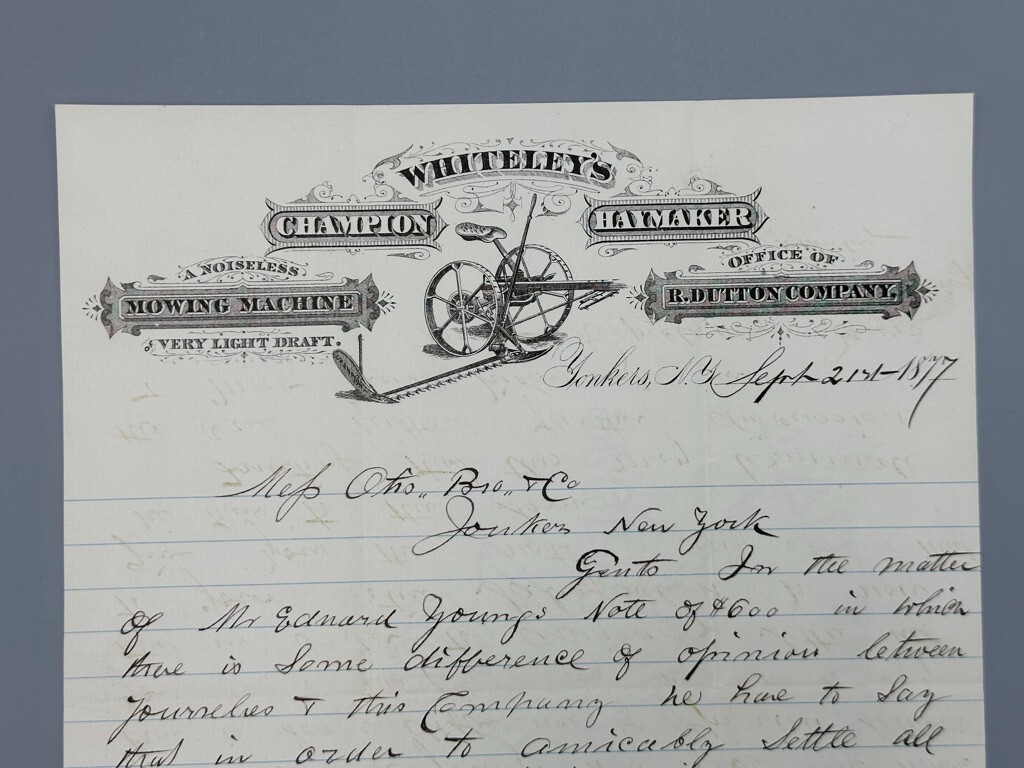 WHITELEY'S
CHAMPION HAYMAKER
A NOISELESS
MOWING MACHINE
OF VERY LIGHT DRAFT.
OFFICE OF
R. DUTTON COMPANY,
Yonkers, N.Y. Sept 21st 1877
Mess Otis Bro & Co
Yonkers New York
Gents In the matter
of Mr Edward Young's Note of $600 in which
there is Some difference of opinion between
yourselves & this Company we have to Say
that in order to amicably Settle all